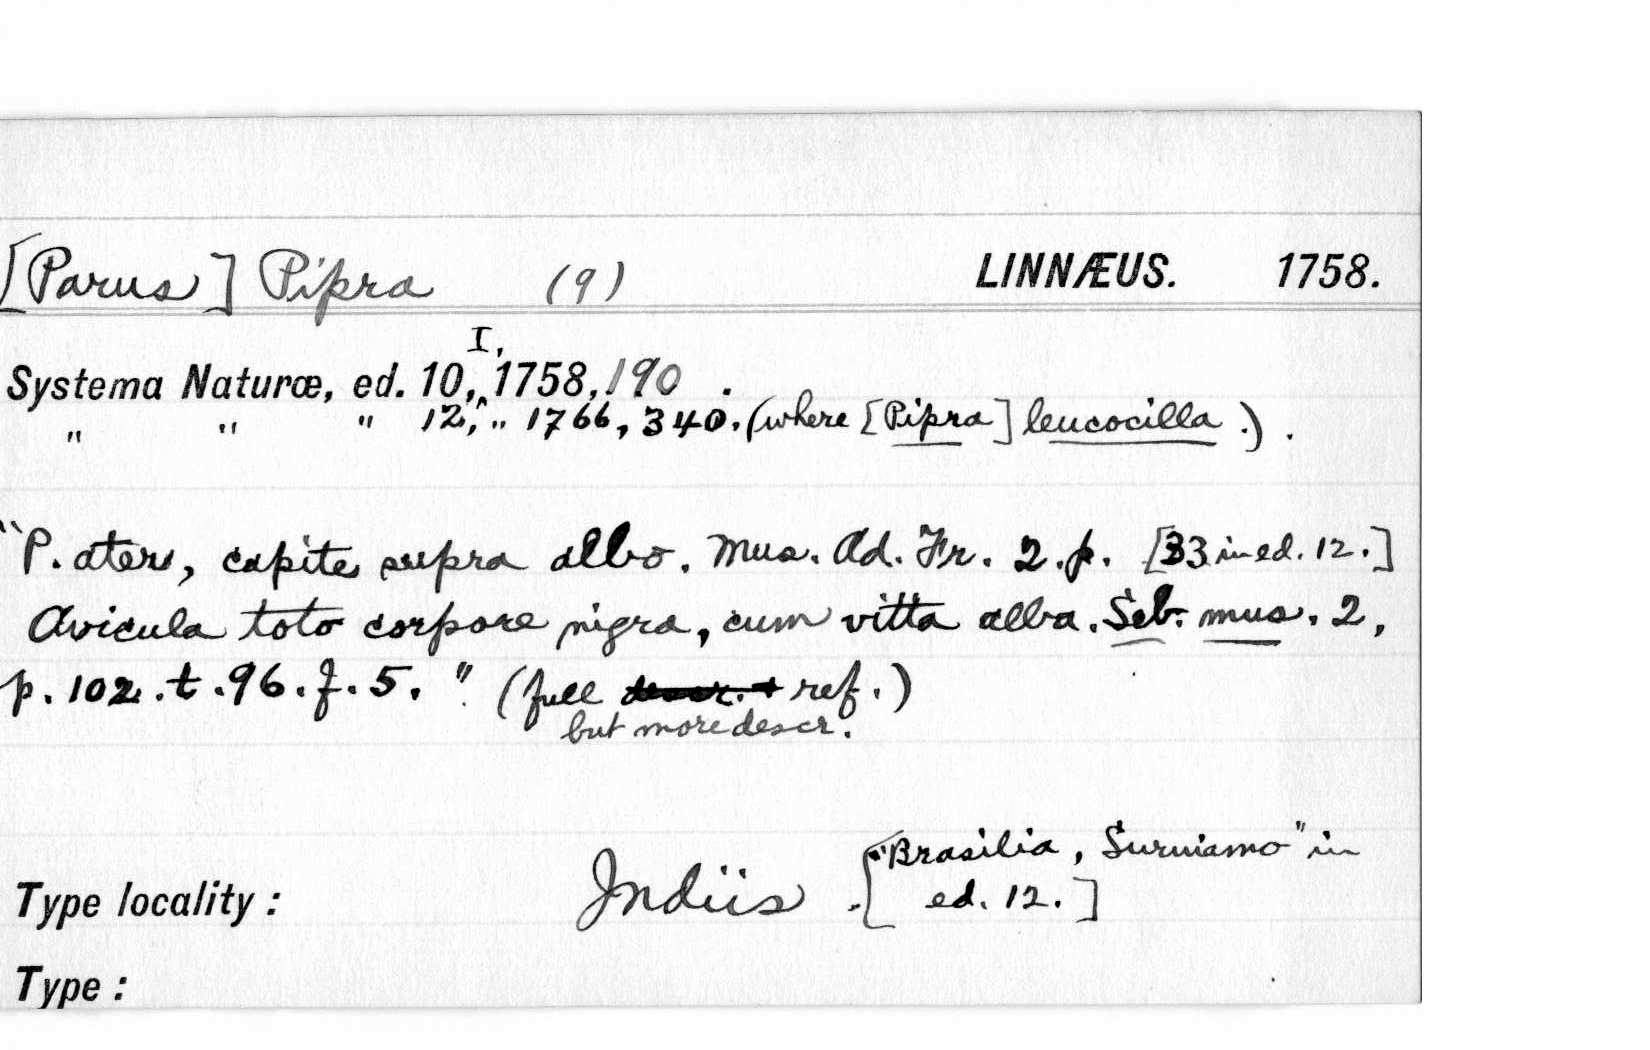 [Parus] Pipra (9) LINNÆUS. 1758.
Systema Naturæ, ed. 10, I, 1758, 190 .
" " " 12, " 1766, 340. (where [Pipra] leucocilla.) .
"P. ater, capite supra albo. Mus. Ad. Fr. 2. p. [33 in ed. 12.]
Avicula toto corpore nigra, cum vitta alba. Seb. mus. 2,
p. 102. t. 96. f. 5." (full descr. + ref.)
but more descr.
Type locality : Indiis . ["Brasilia, Surniamo" in
ed. 12.]
Type :